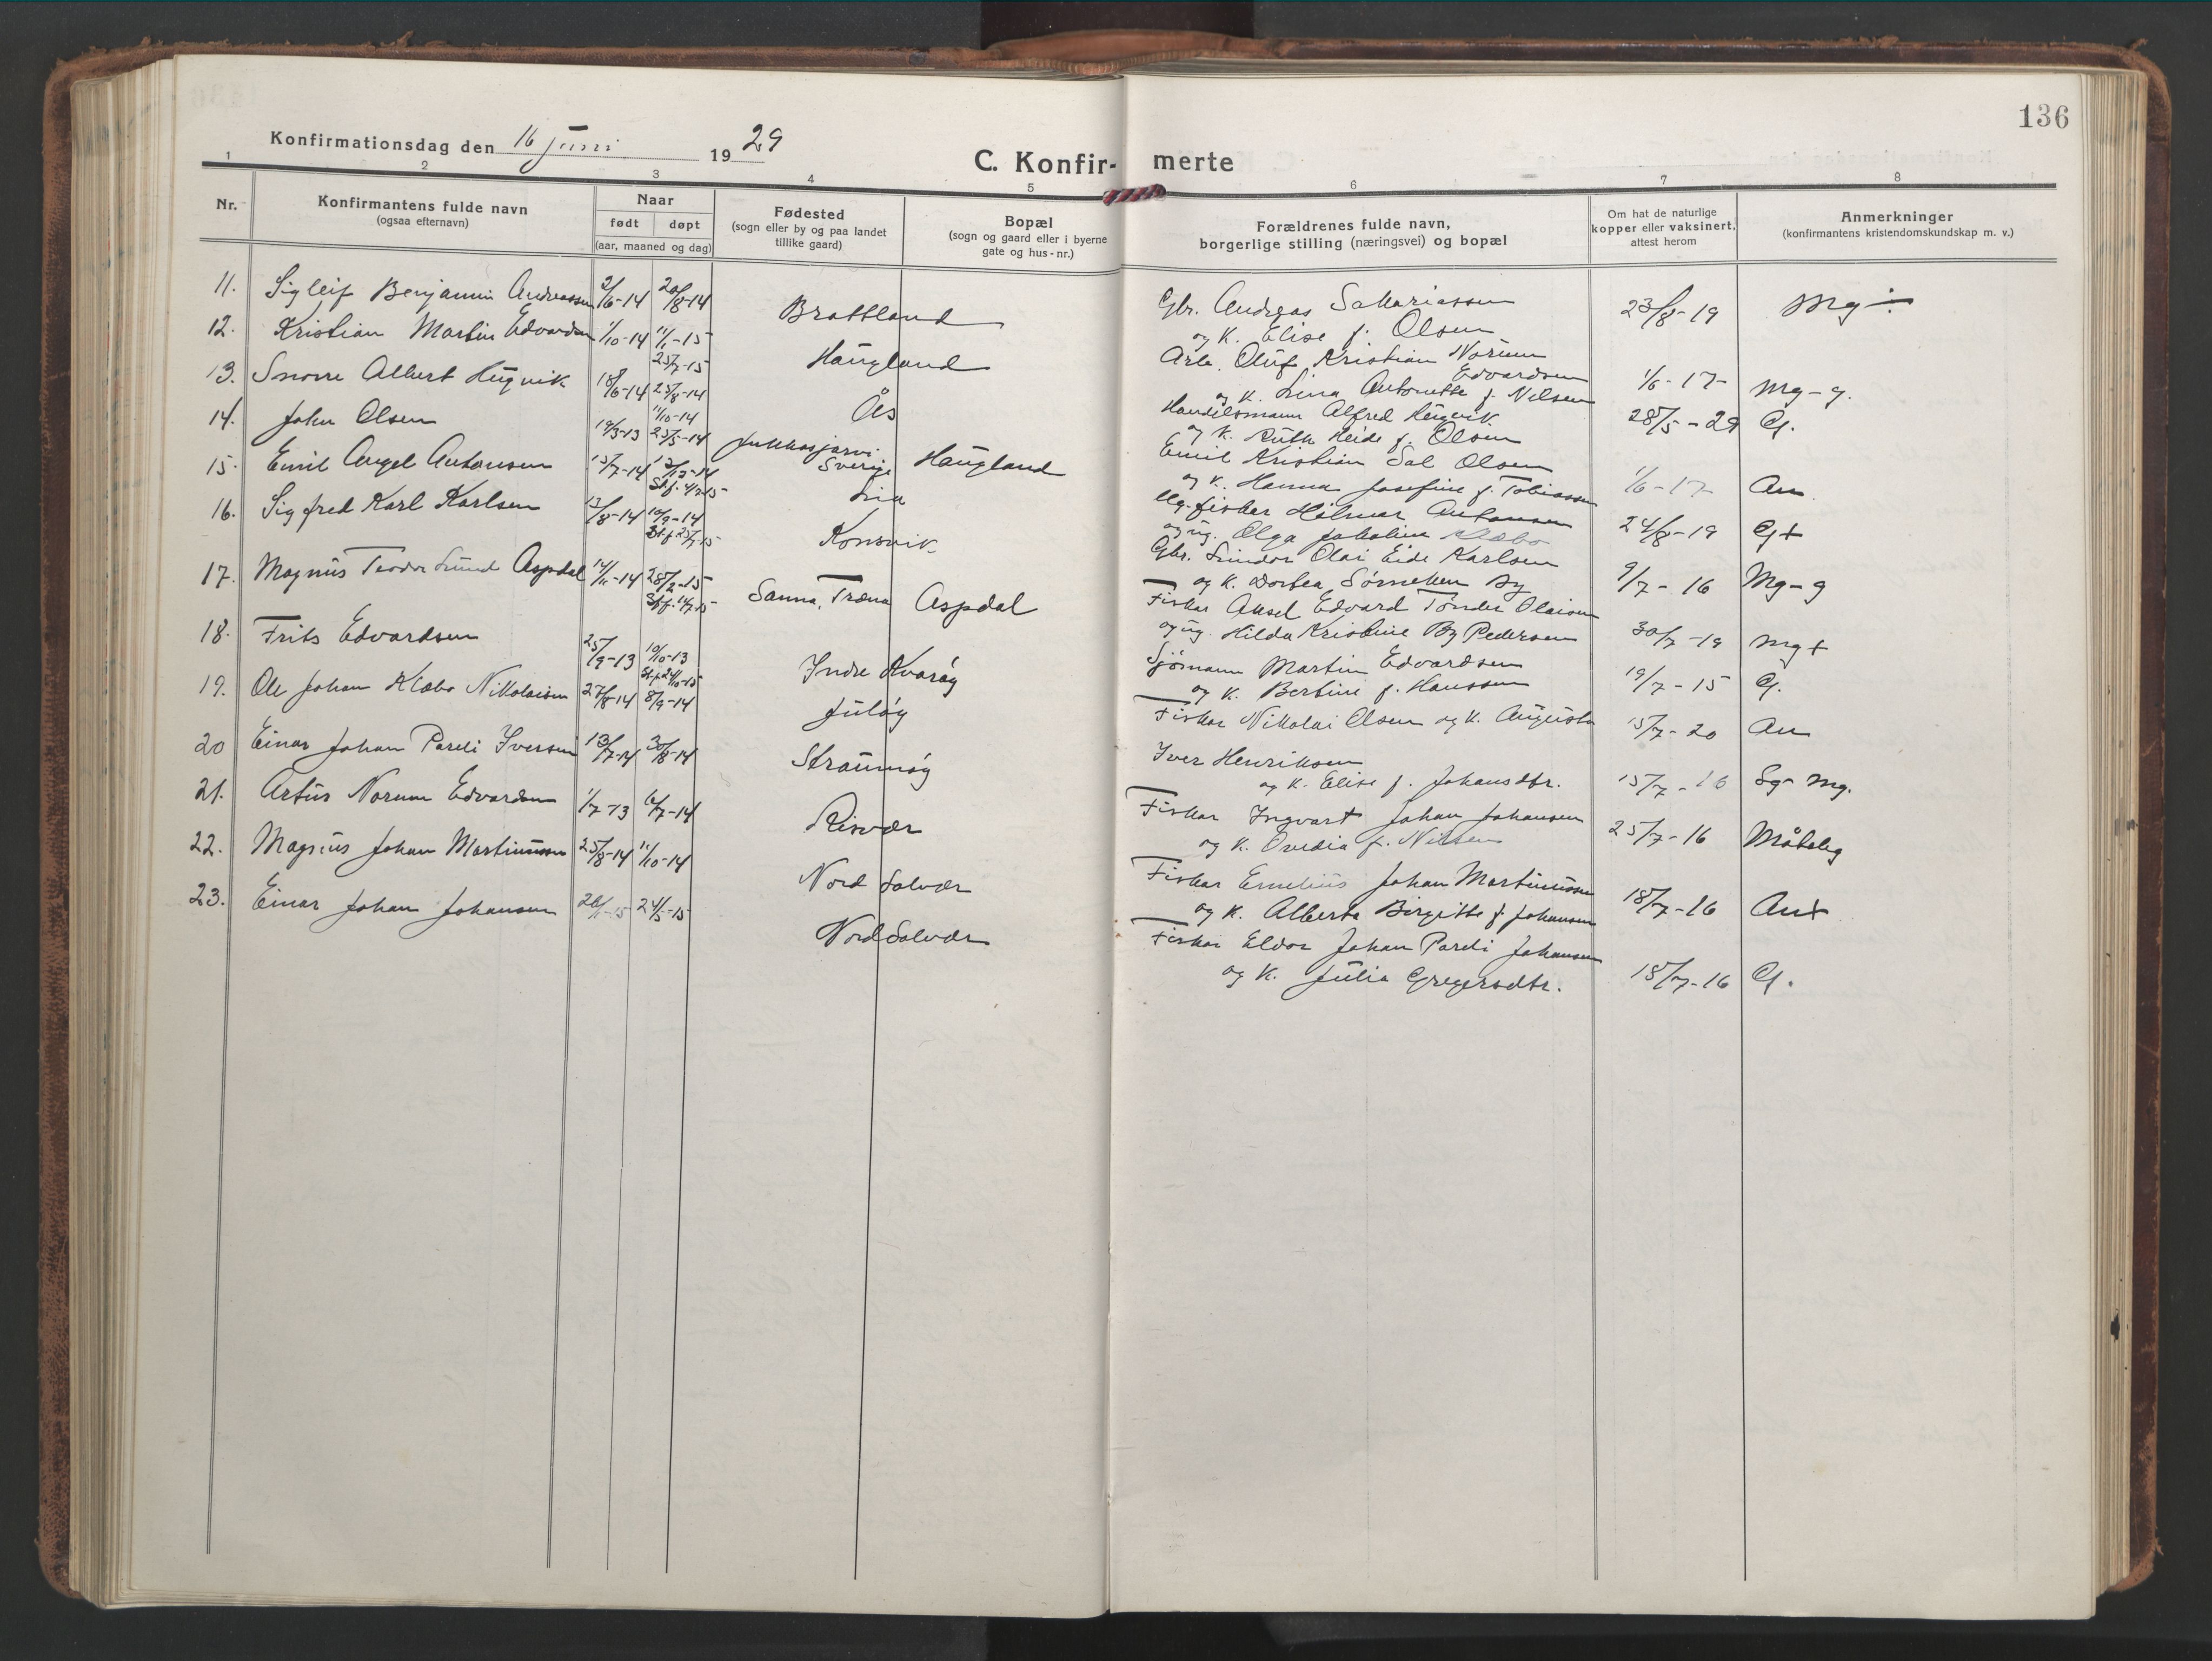 136
Konfirmationsdag den 16 juni 1929
C. Konfir- merte
1 2 3 4 5 6 7 8
Nr.
Konfirmantens fulde navn
(ogsaa efternavn)
Naar
født døpt
(aar, maaned og dag)
Fødested
(sogn eller by og paa landet
tillike gaard)
Bopæl
(sogn og gaard eller i byerne
gate og hus-nr.)
Forældrenes fulde navn,
borgerlige stilling (næringsvei) og bopæl
Om hat de naturlige
kopper eller vaksinert,
attest herom
Anmerkninger
(konfirmantens kristendomskundskap m. v.)
11. Sigleif Benjamin Andreassen 2/6-14 20/8-14 Brattland Gbr. Andreas Sakariassen 23/8-19 Mg ÷
og K. Elise f. Olsen
12. Kristian Martin Edvardsen 1/10-14 11/1-15 Haugland Arb. Oluf Kristian Norum
25/7-15
Edvardsen 1/6-17 Mg-g.
og K. Lina Antonette f. Nilsen
13. Snorre Albert Hugvik 18/6-14 25/8-14 Ås Handelsmann Alfred Hugvik 28/5-29 G.
11/10-14
og K. Ruth Heide f. Olsen
14. John Olsen 19/3-13 25/5-14 Jukkasjarvi Sverige Haugland Emil Kristian Sal Olsen 1/6-17 An
og K. Hanna Josefine f. Tobiassen
15. Emil Angel Antonsen 15/7-14 13/12-14 Lia Ug. fisker Hilmar Antonsen 24/8-19 G+
St.f. 4/7-15
og ug. Olga Jakobine Klæbo
16. Sigfred Karl Karlsen 13/8-14 10/9-14 Konsvik Gbr. Sindor Olai Eide Karlsen 9/7-16 Mg-g
St.f. 25/7-15
og K. Dortea Sørnehen By
17. Magnus Teodor Lund Aspdal 14/11-14 28/2-15 Sanna, Træna Aspdal Fisker Aksel Edvard Tønder Olaisen 30/7-19 Mg+
St.f. 14/7-15
og ug. Hilda Kristine By Pedersen
18. Frits Edvardsen 25/9-13 19/10-13 Indre Kvarøy Sjømann Martin Edvardsen 19/7-15 G.
St.f. 24/10-15
og K. Bertine f. Hanssen
19. Ole Johan Klæbo Nikolaisen 27/8-14 8/9-14 Juløy Fisker Nikolai Olsen og K. Augusta 15/7-20 An
20 Einar Johan Pareli Iversen 13/7-14 30/8-14 Straumøy Iver Henriksen
og K. Elise f. Johansdtr. 15/7-16 Sg-Mg.
21. Artur Norum Edvardsen 1/7-13 6/7-14 Risvær Fisker Ingvart Johan Johansen 25/7-16 Måtelig
og K. Ovedia f. Nilsen
22. Magnus Johan Martinussen 25/8-14 11/10-14 Nord Solvær Fisker Ernelius Johan Martinussen 18/7-16 An+
og K. Alberta Birgitte f. Johansen
23. Einar Johan Johansen 26/1-15 24/5-15 Nord Solvær Fisker Eldor Johan Pareli Johansen
og K. Julia Gregersdtr. 18/7-16 G.